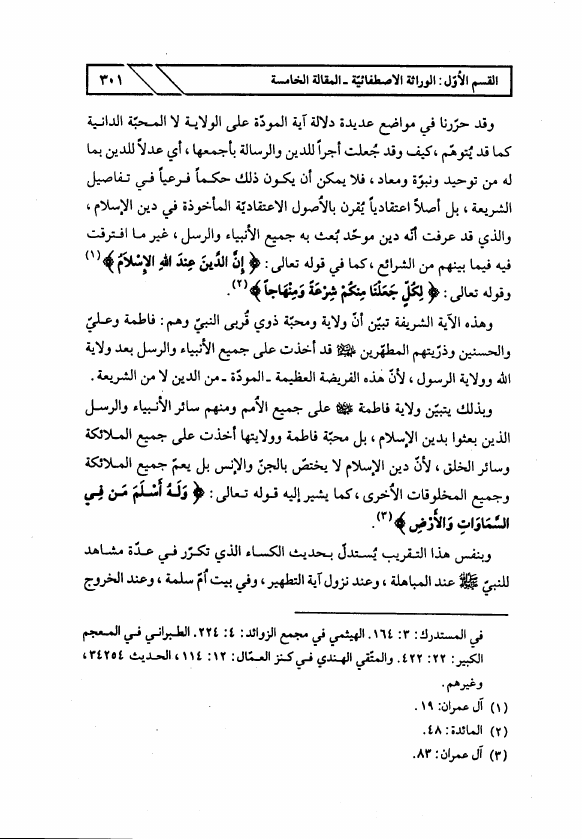 القسم الأوّل: الوراثة الاصطفائيّة ـ المقالة الخامسة ٣٠١
وقد حرّرنا في مواضع عديدة دلالة آية المودّة على الولاية لا المحبّة الدانية
كما قد يُتوهّم ، كيف وقد جُعلت أجراً للدين والرسالة بأجمعها ، أي عدلاً للدين بما
له من توحيد ونبوّة ومعاد ، فلا يمكن أن يكون ذلك حكماً فرعياً في تفاصيل
الشريعة ، بل أصلاً اعتقادياً يُقرن بالأصول الاعتقاديّة المأخوذة في دين الإسلام ،
والذي قد عرفت أنّه دين موحّد بُعث به جميع الأنبياء والرسل ، غير ما افترقت
فيه فيما بينهم من الشرائع ، كما في قوله تعالى: ﴿ إِنَّ الدِّينَ عِندَ اللهِ الإِسْلاَمُ ﴾(١)
وقوله تعالى: ﴿ لِكُلٍّ جَعَلْنَا مِنكُمْ شِرْعَةً وَمِنْهَاجاً ﴾(٢).
وهذه الآية الشريفة تبيّن أنّ ولاية ومحبّة ذوي قُربى النبيّ وهم: فاطمة وعليّ
والحسنين وذرّيتهم المطهّرين ﷺ قد أخذت على جميع الأنبياء والرسل بعد ولاية
الله وولاية الرسول ، لأنّ هذه الفريضة العظيمة ـ المودّة ـ من الدين لا من الشريعة .
وبذلك يتبيّن ولاية فاطمة على جميع الأمم ومنهم سائر الأنبياء والرسل
الذين بعثوا بدين الإسلام ، بل محبّة فاطمة وولايتها أخذت على جميع الملائكة
وسائر الخلق ، لأنّ دين الإسلام لا يختصّ بالجنّ والإنس بل يعمّ جميع الملائكة
وجميع المخلوقات الأخرى ، كما يشير إليه قوله تعالى: ﴿ وَلَهُ أَسْلَمَ مَن فِي
السَّمَاوَاتِ وَالأَرْضِ ﴾(٣).
وبنفس هذا التقريب يُستدلّ بحديث الكساء الذي تكرّر في عدّة مشاهد
للنبيّ ﷺ عند المباهلة ، وعند نزول آية التطهير ، وفي بيت أمّ سلمة ، وعند الخروج
في المستدرك: ٣: ١٦٤. الهيثمي في مجمع الزوائد: ٤: ٢٢٤. الطبراني في المعجم
الكبير: ٢٢: ٤٢٢. والمتّقي الهندي في كنز العمّال: ١٢: ١١٤ ، الحديث ٣٤٢٥٤ ،
وغيرهم.
(١) آل عمران: ١٩ .
(٢) المائدة: ٤٨.
(٣) آل عمران: ٨٣.